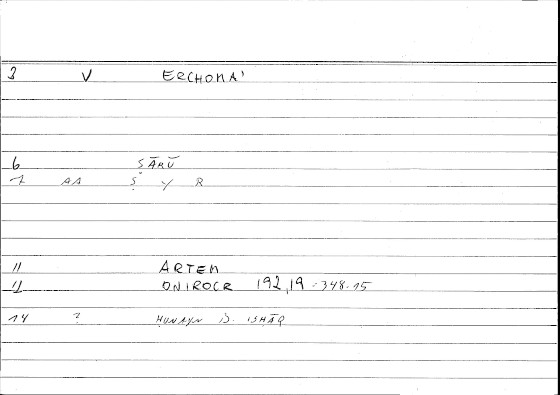 3 V ERCHOMA'
6 ṢĀRŪ
7 AA Ṣ Y R
11 ARTEM
12 ONIROCR 192,19 - 348.15
14 ? ḤUNAYN B. ISḤĀQ